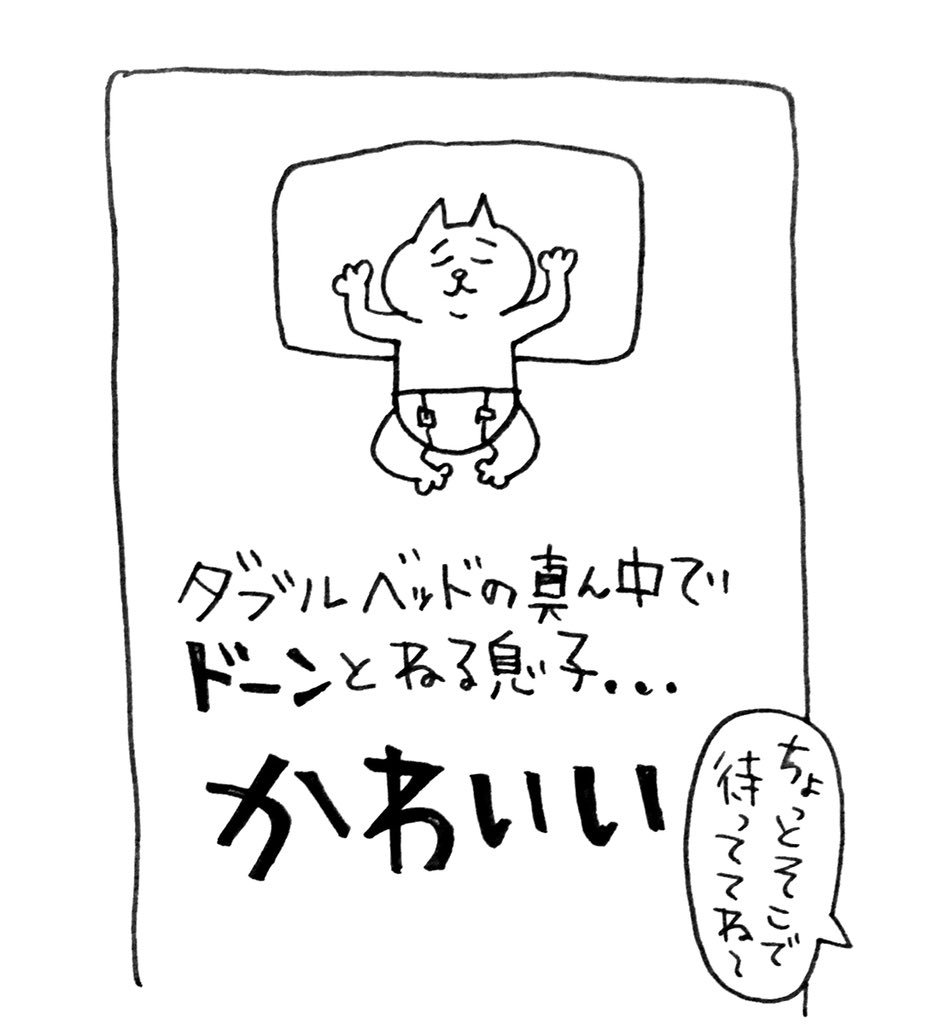 ダブルベッドの真ん中で
ドーンとねる息子...
かわいい
ちょっとそこで
待っててね〜